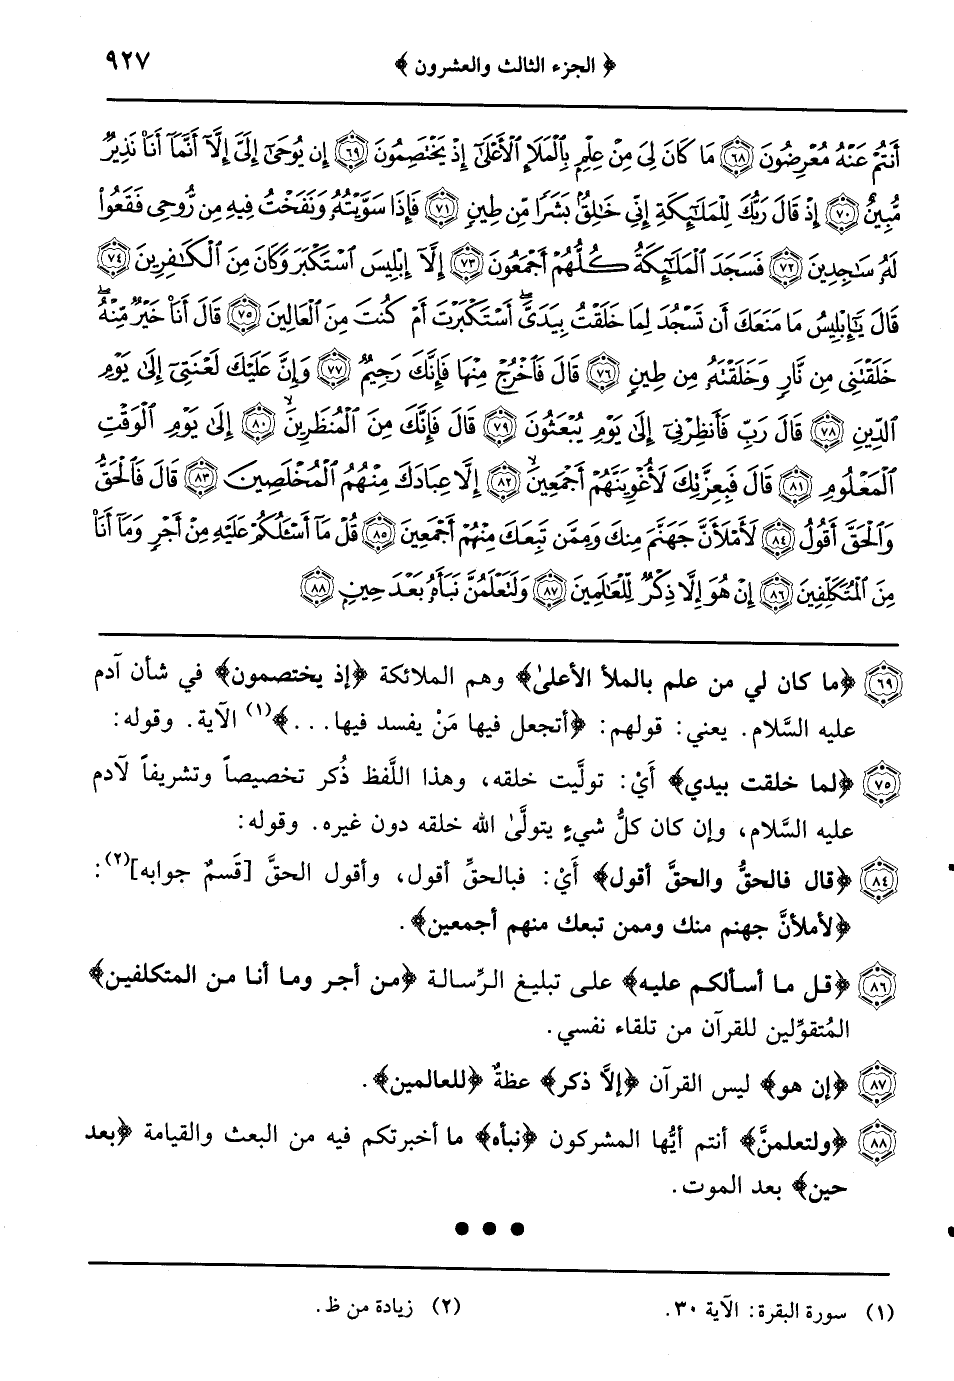 ﴿ الجزء الثالث والعشرون ﴾ ٩٢٧
أَنتُمْ عَنْهُ مُعْرِضُونَ ٦٨ مَا كَانَ لِىَ مِنْ عِلْمٍۭ بِٱلْمَلَإِ ٱلْأَعْلَىٰٓ إِذْ يَخْتَصِمُونَ ٦٩ إِن يُوحَىٰٓ إِلَىَّ إِلَّآ أَنَّمَآ أَنَا۠ نَذِيرٌ
مُّبِينٌ ٧٠ إِذْ قَالَ رَبُّكَ لِلْمَلَٰٓئِكَةِ إِنِّى خَٰلِقٌۢ بَشَرًا مِّن طِينٍ ٧١ فَإِذَا سَوَّيْتُهُۥ وَنَفَخْتُ فِيهِ مِن رُّوحِى فَقَعُوا۟
لَهُۥ سَٰجِدِينَ ٧٢ فَسَجَدَ ٱلْمَلَٰٓئِكَةُ كُلُّهُمْ أَجْمَعُونَ ٧٣ إِلَّآ إِبْلِيسَ ٱسْتَكْبَرَ وَكَانَ مِنَ ٱلْكَٰفِرِينَ ٧٤
قَالَ يَٰٓإِبْلِيسُ مَا مَنَعَكَ أَن تَسْجُدَ لِمَا خَلَقْتُ بِيَدَىَّ ۖ أَسْتَكْبَرْتَ أَمْ كُنتَ مِنَ ٱلْعَالِينَ ٧٥ قَالَ أَنَا۠ خَيْرٌ مِّنْهُ ۖ
خَلَقْتَنِى مِن نَّارٍ وَخَلَقْتَهُۥ مِن طِينٍ ٧٦ قَالَ فَٱخْرُجْ مِنْهَا فَإِنَّكَ رَجِيمٌ ٧٧ وَإِنَّ عَلَيْكَ لَعْنَتِىٓ إِلَىٰ يَوْمِ
ٱلدِّينِ ٧٨ قَالَ رَبِّ فَأَنظِرْنِىٓ إِلَىٰ يَوْمِ يُبْعَثُونَ ٧٩ قَالَ فَإِنَّكَ مِنَ ٱلْمُنظَرِينَ ٨٠ إِلَىٰ يَوْمِ ٱلْوَقْتِ
ٱلْمَعْلُومِ ٨١ قَالَ فَبِعِزَّتِكَ لَأُغْوِيَنَّهُمْ أَجْمَعِينَ ٨٢ إِلَّا عِبَادَكَ مِنْهُمُ ٱلْمُخْلَصِينَ ٨٣ قَالَ فَٱلْحَقُّ
وَٱلْحَقَّ أَقُولُ ٨٤ لَأَمْلَأَنَّ جَهَنَّمَ مِنكَ وَمِمَّن تَبِعَكَ مِنْهُمْ أَجْمَعِينَ ٨٥ قُلْ مَآ أَسْـَٔلُكُمْ عَلَيْهِ مِنْ أَجْرٍ وَمَآ أَنَا۠
مِنَ ٱلْمُتَكَلِّفِينَ ٨٦ إِنْ هُوَ إِلَّا ذِكْرٌ لِّلْعَٰلَمِينَ ٨٧ وَلَتَعْلَمُنَّ نَبَأَهُۥ بَعْدَ حِينٍۭ ٨٨
٦٩ ﴿ما كان لي من علم بالملأ الأعلىٰ﴾ وهم الملائكة ﴿إذ يختصمون﴾ في شأن آدم
عليه السَّلام. يعني: قولهم: ﴿أتجعل فيها مَنْ يفسد فيها...﴾(١) الآية. وقوله:
٧٥ ﴿لما خلقت بيدي﴾ أَيْ: تولَّيت خلقه، وهذا اللَّفظ ذُكر تخصيصاً وتشريفاً لآدم
عليه السَّلام، وإن كان كلُّ شيءٍ يتولَّىٰ الله خلقه دون غيره. وقوله:
٨٤ ﴿قال فالحقُّ والحقَّ أقول﴾ أَيْ: فبالحقِّ أقول، وأقول الحقَّ [قَسمٌ جوابه](٢):
﴿لأملأنَّ جهنم منك وممن تبعك منهم أجمعين﴾.
٨٦ ﴿قل ما أسألكم عليه﴾ على تبليغ الرِّسالة ﴿من أجر وما أنا من المتكلفين﴾
المُتقوِّلين للقرآن من تلقاء نفسي.
٨٧ ﴿إن هو﴾ ليس القرآن ﴿إلاَّ ذكر﴾ عظةٌ ﴿للعالمين﴾.
٨٨ ﴿ولتعلمنَّ﴾ أنتم أيُّها المشركون ﴿نبأه﴾ ما أخبرتكم فيه من البعث والقيامة ﴿بعد
حين﴾ بعد الموت.
● ● ●
(١) سورة البقرة: الآية ٣٠. (٢) زيادة من ظ.